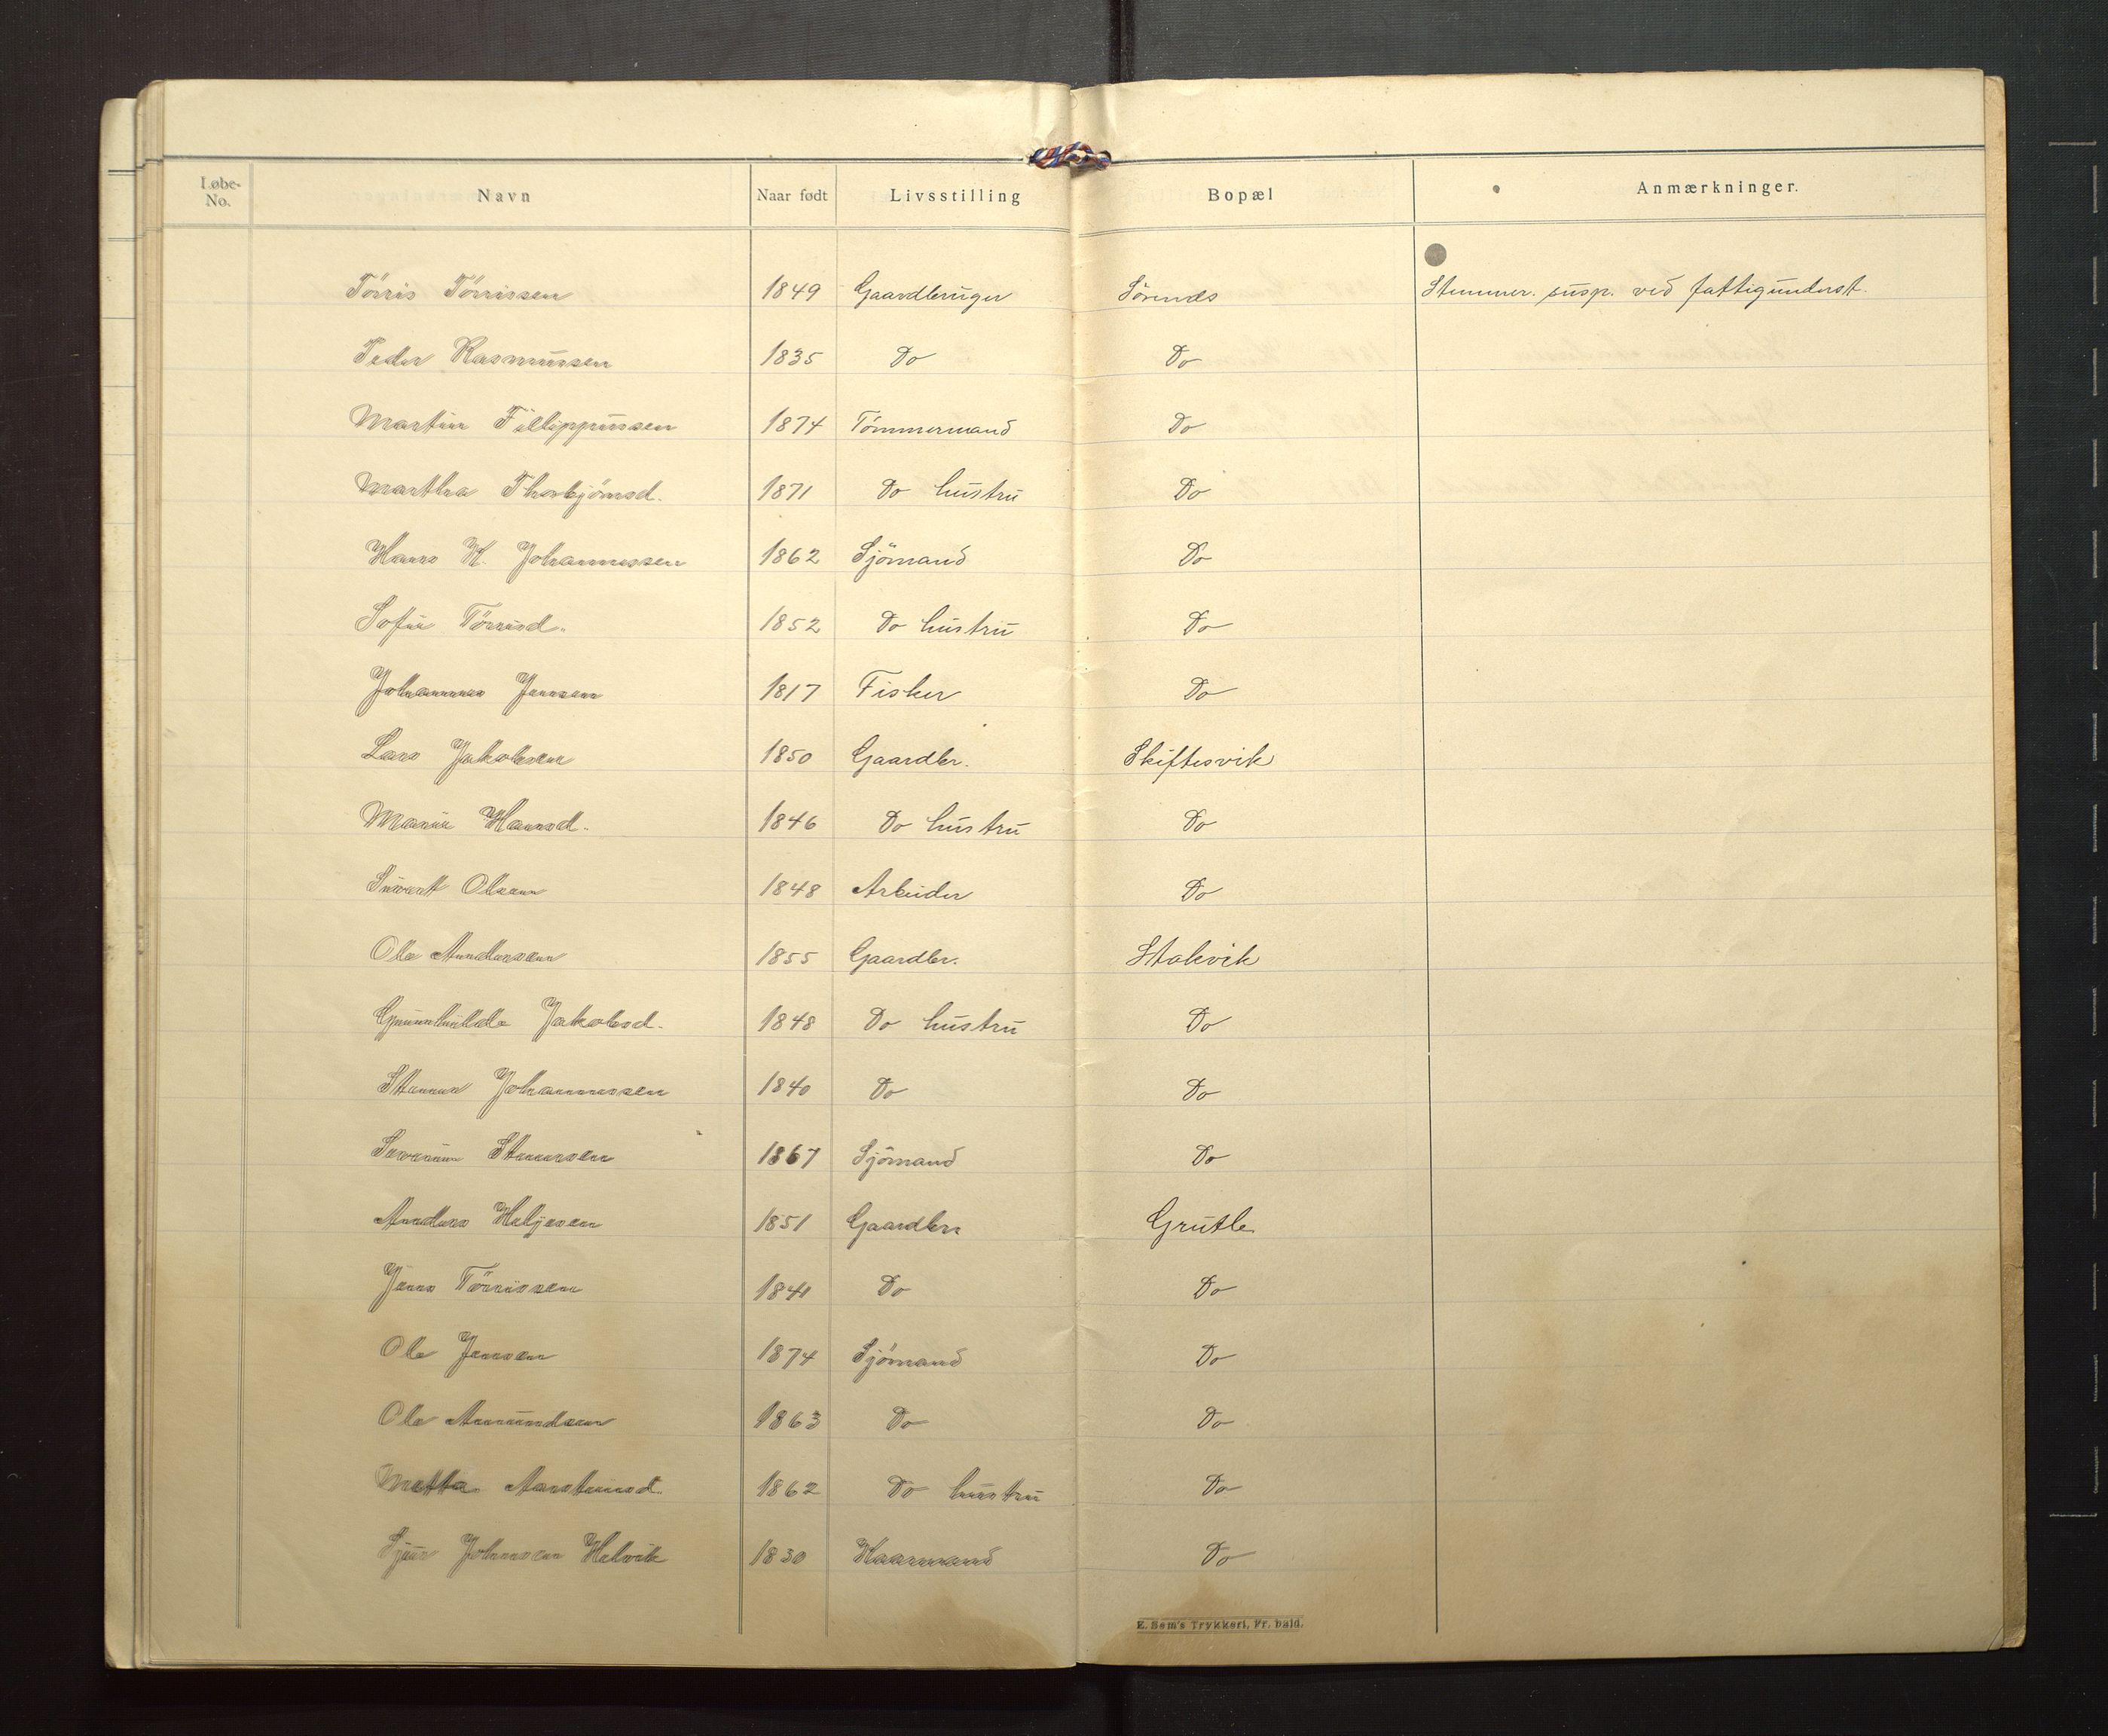 Løbe-No. Navn Naar født Livsstilling Bopæl Anmærkninger.
Tørris Tørrissen 1849 Gaardbruger Sørends Stemmer. susp. ved fattigunderst.
Peder Rasmussen 1835 Do Do
Martin Fillippussen 1874 Tömmermand Do
Martha Thorbjörnsd. 1871 Do hustru Do
Hans K. Johannessen 1862 Sjömand Do
Sofie Törrisd. 1852 Do hustru Do
Johannes Jensen 1817 Fisker Do
Lars Jakobsen 1850 Gaardbr. Skiftesvik
Marie Hansd. 1846 Do hustru Do
Sivert Olsen 1848 Arbeider Do
Ole Andersen 1855 Gaardbr. Stokvik
Gunhilde Jakobsd. 1848 Do hustru Do
Stener Johannessen 1840 Do Do
Severin Stenersen 1867 Sjömand Do
Anders Helgesen 1851 Gaardbr. Grutle
Jens Törrissen 1841 Do Do
Ole Jensen 1874 Sjömand Do
Ole Amundsen 1863 Do Do
Metta Aansteinsd. 1862 Do hustru Do
Sjur Johnsen Helvik 1830 Kaarmand Do
E. Sem's Trykkeri, Fr. hald.